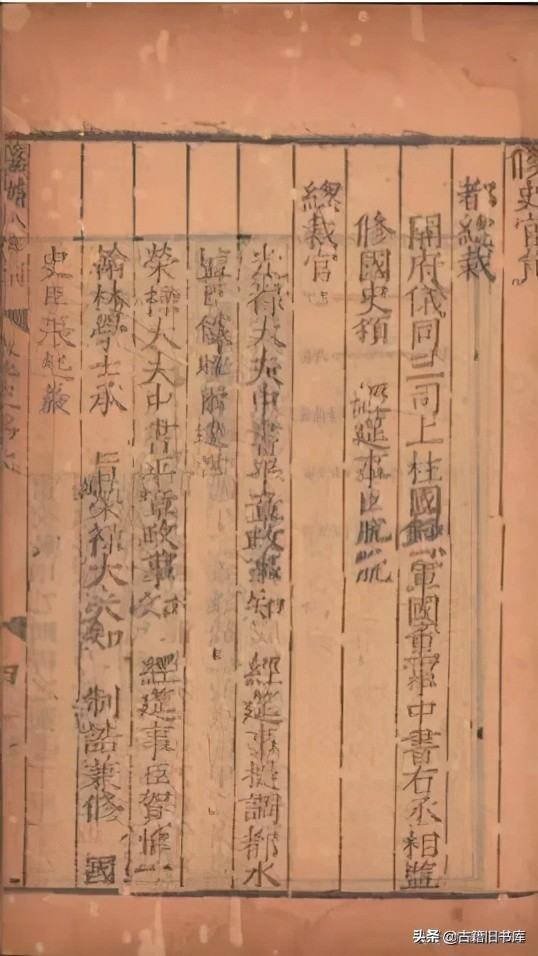 修史官
總裁
開府儀同三司上柱國錄軍國重事中書右丞相監
修國史領 經筵事臣脫脫
總裁官
光祿大夫中書平章政事知 經筵事提調都水
監臣鐵
榮祿大夫中書平章政事知 經筵事臣賀惟一
翰林學士承 旨榮祿大夫知 制誥兼修 國
史臣張起巖
头条 @古籍旧书库